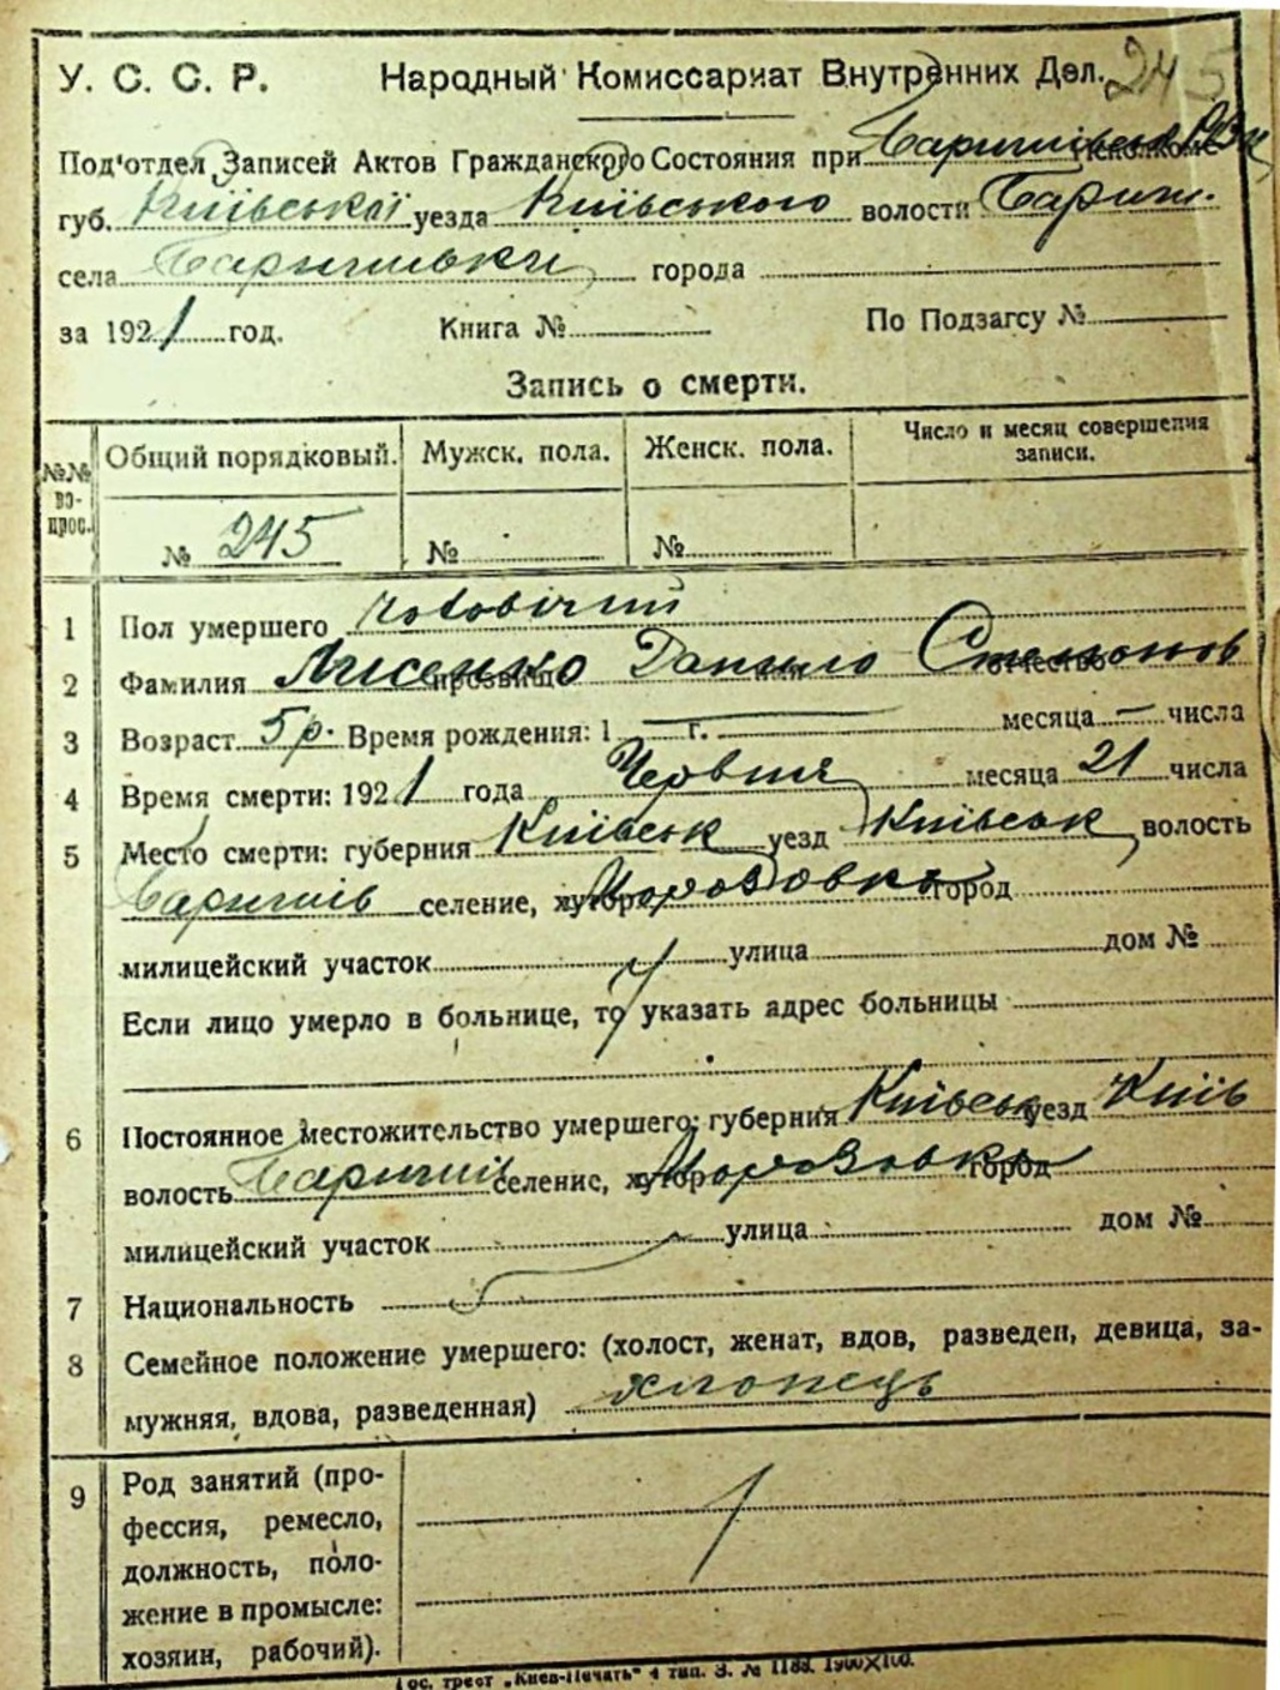 У. С. С. Р. Народный Комиссариат Внутренних Дел. 245
Под'отдел Записей Актов Гражданского Состояния при Исполкоме
губ. Київської уезда Київського волости Бариш.
села Баришівки города
за 1921 год. Книга № По Подзагсу №
Запись о смерти.
№№ вопрос. Общий порядковый. Мужск. пола. Женск. пола. Число и месяц совершения записи.
№ 245 № №
1 Пол умершего чоловічий
2 Фамилия прозвище Лисенко имя Данило отчество Семенов
3 Возраст 5 р. Время рождения: 1 — г. месяца — числа
4 Время смерти: 1921 года Червня месяца 21 числа
5 Место смерти: губерния Київськ уезд Київськ волость
Баришів селение, хутор Морозовка город
милицейский участок улица дом №
Если лицо умерло в больнице, то указать адрес больницы
6 Постоянное местожительство умершего: губерния Київськ уезд Київ
волость Баришів селение, хутор Морозовка город
милицейский участок улица дом №
7 Национальность
8 Семейное положение умершего: (холост, женат, вдов, разведен, девица, за-
мужняя, вдова, разведенная) хлопець
9 Род занятий (про-
фессия, ремесло,
должность, поло-
жение в промысле:
хозяин, рабочий).
Гос. трест „Киев-Печать" 4 тип. З. № 1188. 1900Х100.